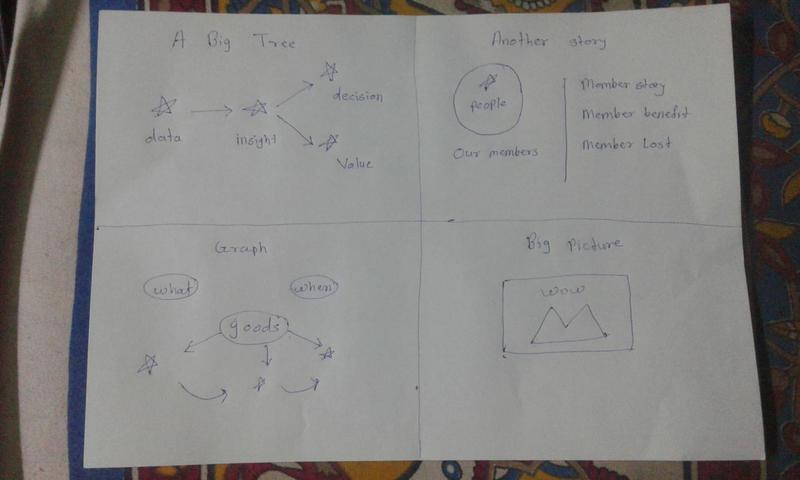 A Big Tree
data
insight
decision
Value
Another story
people
Our members
Member story
Member benefit
Member Lost
Graph
what
when
goods
Big Picture
WOW